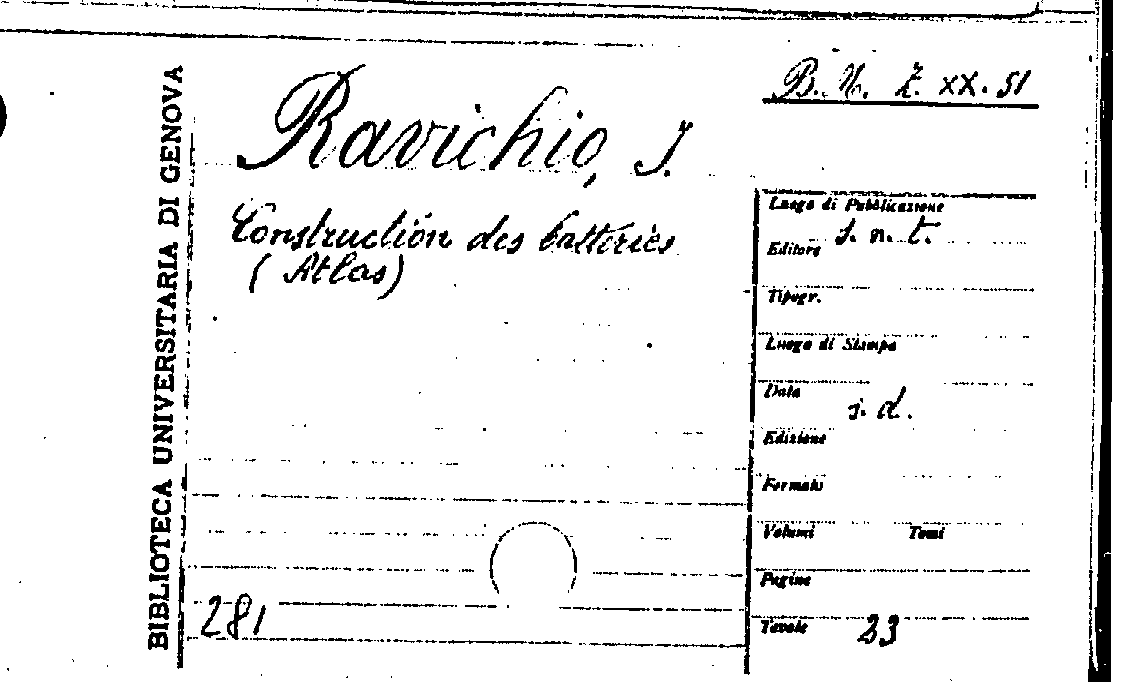 BIBLIOTECA UNIVERSITARIA DI GENOVA
B. N. Z. XX. 51
Ravichio, J.
Construction des batteries
(Atlas)
Luogo di Pubblicazione
s. n. t.
Editore
Tipogr.
Luogo di Stampa
Data
s. d.
Edizione
Formato
Volumi Tomi
Pagine
Tavole 23
281